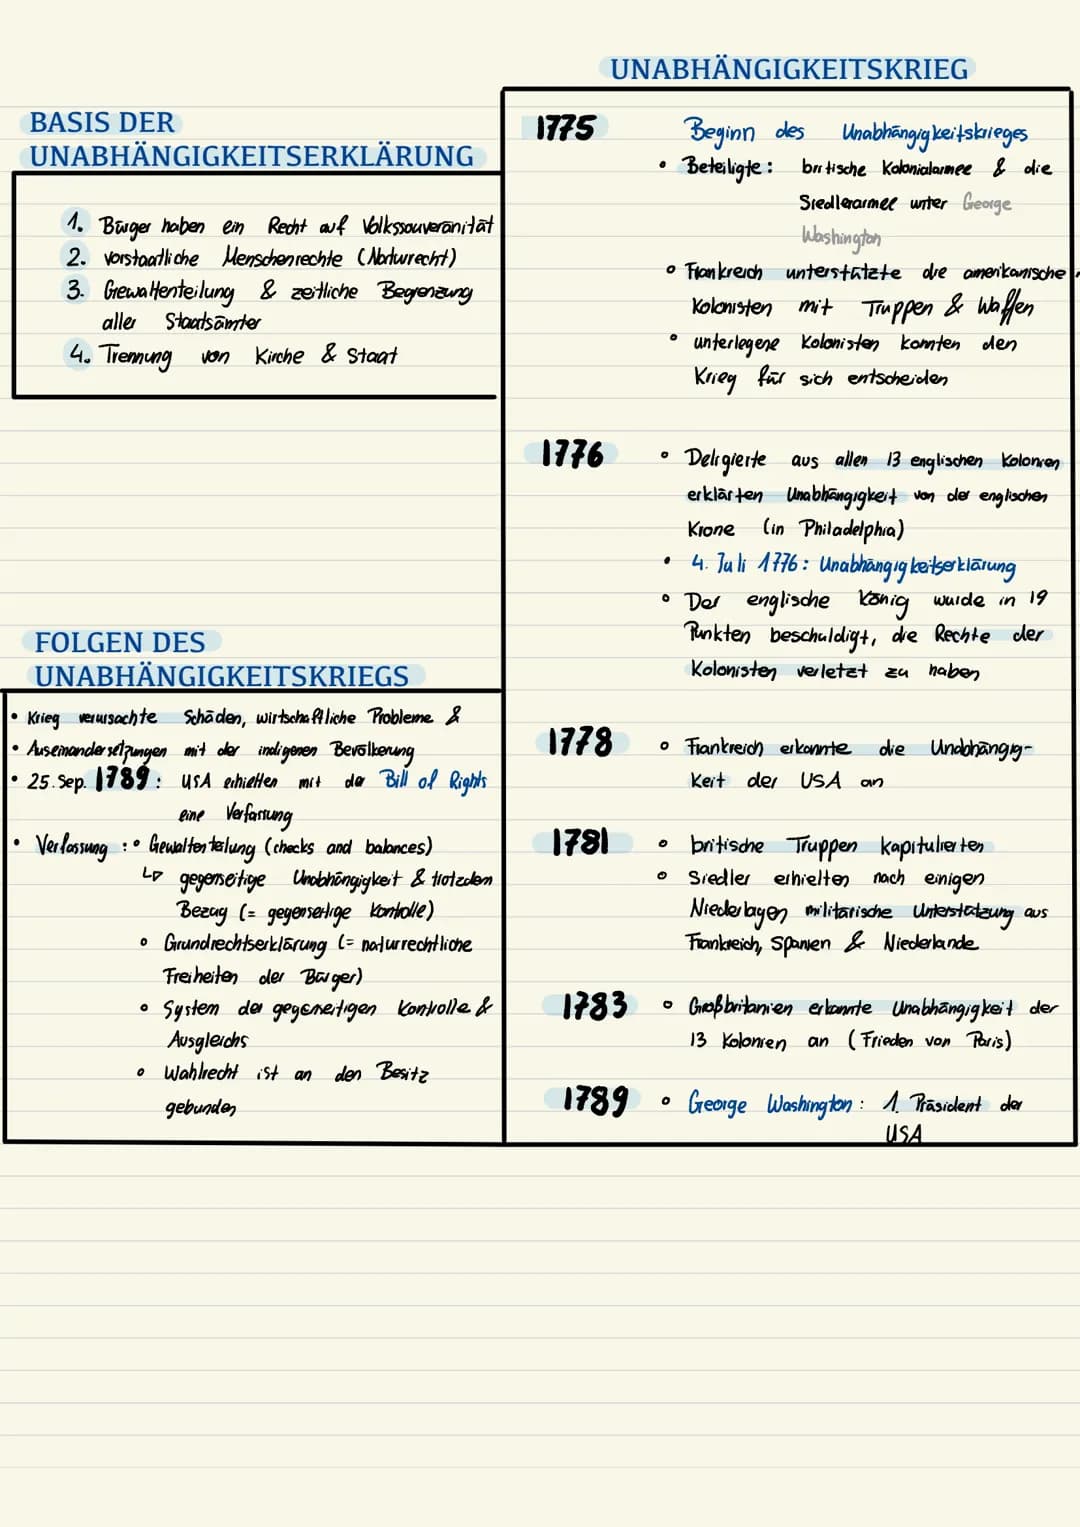 BASIS DER
UNABHÄNGIGKEITSERKLÄRUNG
1. Bürger haben ein Recht auf Volkssouveränität
2. vorstaatliche Menschenrechte (Naturrecht)
3. Gewaltenteilung & zeitliche Begrenzung
aller Staatsämter
4. Trennung von Kirche & Staat
FOLGEN DES
UNABHÄNGIGKEITSKRIEGS
• Krieg verursachte Schäden, wirtschaftliche Probleme &
• Auseinandersetzungen mit der indigenen Bevölkerung
• 25. Sep. 1789: USA erhielten mit der Bill of Rights
eine Verfassung
• Verfassung: • Gewaltenteilung (checks and balances)
↳ gegenseitige Unabhängigkeit & trotzdem
Bezug (= gegenseitige Kontrolle)
• Grundrechtserklärung (= naturrechtliche
Freiheiten der Bürger)
• System der gegenseitigen Kontrolle &
Ausgleichs
• Wahlrecht ist an den Besitz
gebunden
UNABHÄNGIGKEITSKRIEG
1775 Beginn des Unabhängigkeitskrieges
• Beteiligte: britische Kolonialarmee & die
Siedlerarmee unter George
Washington
• Frankreich unterstützte die amerikanische
Kolonisten mit Truppen & Waffen
• unterlegene Kolonisten konnten den
Krieg für sich entscheiden
1776 • Deligierte aus allen 13 englischen Kolonien
erklärten Unabhängigkeit von der englischen
Krone (in Philadelphia)
• 4. Juli 1776: Unabhängigkeitserklärung
• Der englische König wurde in 19
Punkten beschuldigt, die Rechte der
Kolonisten verletzt zu haben
1778 • Frankreich erkannte die Unabhängig-
keit der USA an
1781 • britische Truppen kapitulierten
• Siedler erhielten nach einigen
Niederlagen militärische Unterstützung aus
Frankreich, Spanien & Niederlande
1783 • Großbritanien erkannte Unabhängigkeit der
13 Kolonien an (Frieden von Paris)
1789 • George Washington: 1. Präsident der
USA